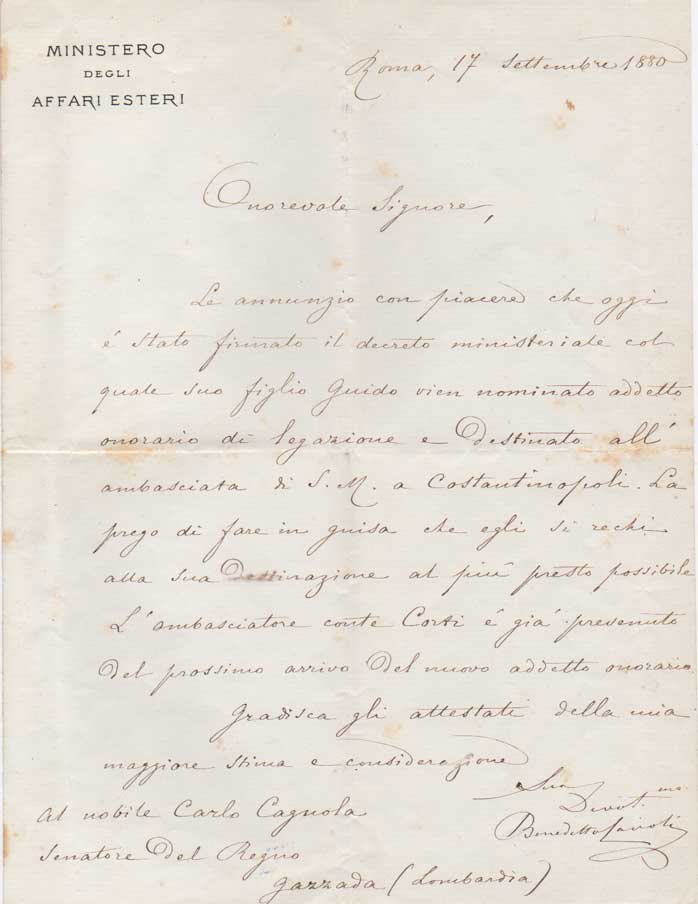 MINISTERO
DEGLI
AFFARI ESTERI
Roma, 17 Settembre 1880
Onorevole Signore,
Le annunzio con piacere che oggi
é stato firmato il decreto ministeriale col
quale suo figlio Guido vien nominato addetto
onorario di legazione e destinato all'
ambasciata di S. M. a Costantinopoli. La
prego di fare in guisa che egli si rechi
alla sua destinazione al piú presto possibile
L'ambasciatore conte Corti é giá prevenuto
del prossimo arrivo del nuovo addetto onorario.
Gradisca gli attestati della mia
maggiore stima e considerazione
Suo
Devot.mo
Benedetto Cairoli
Al nobile Carlo Cagnola
Senatore del Regno
Gazzada (Lombardia)